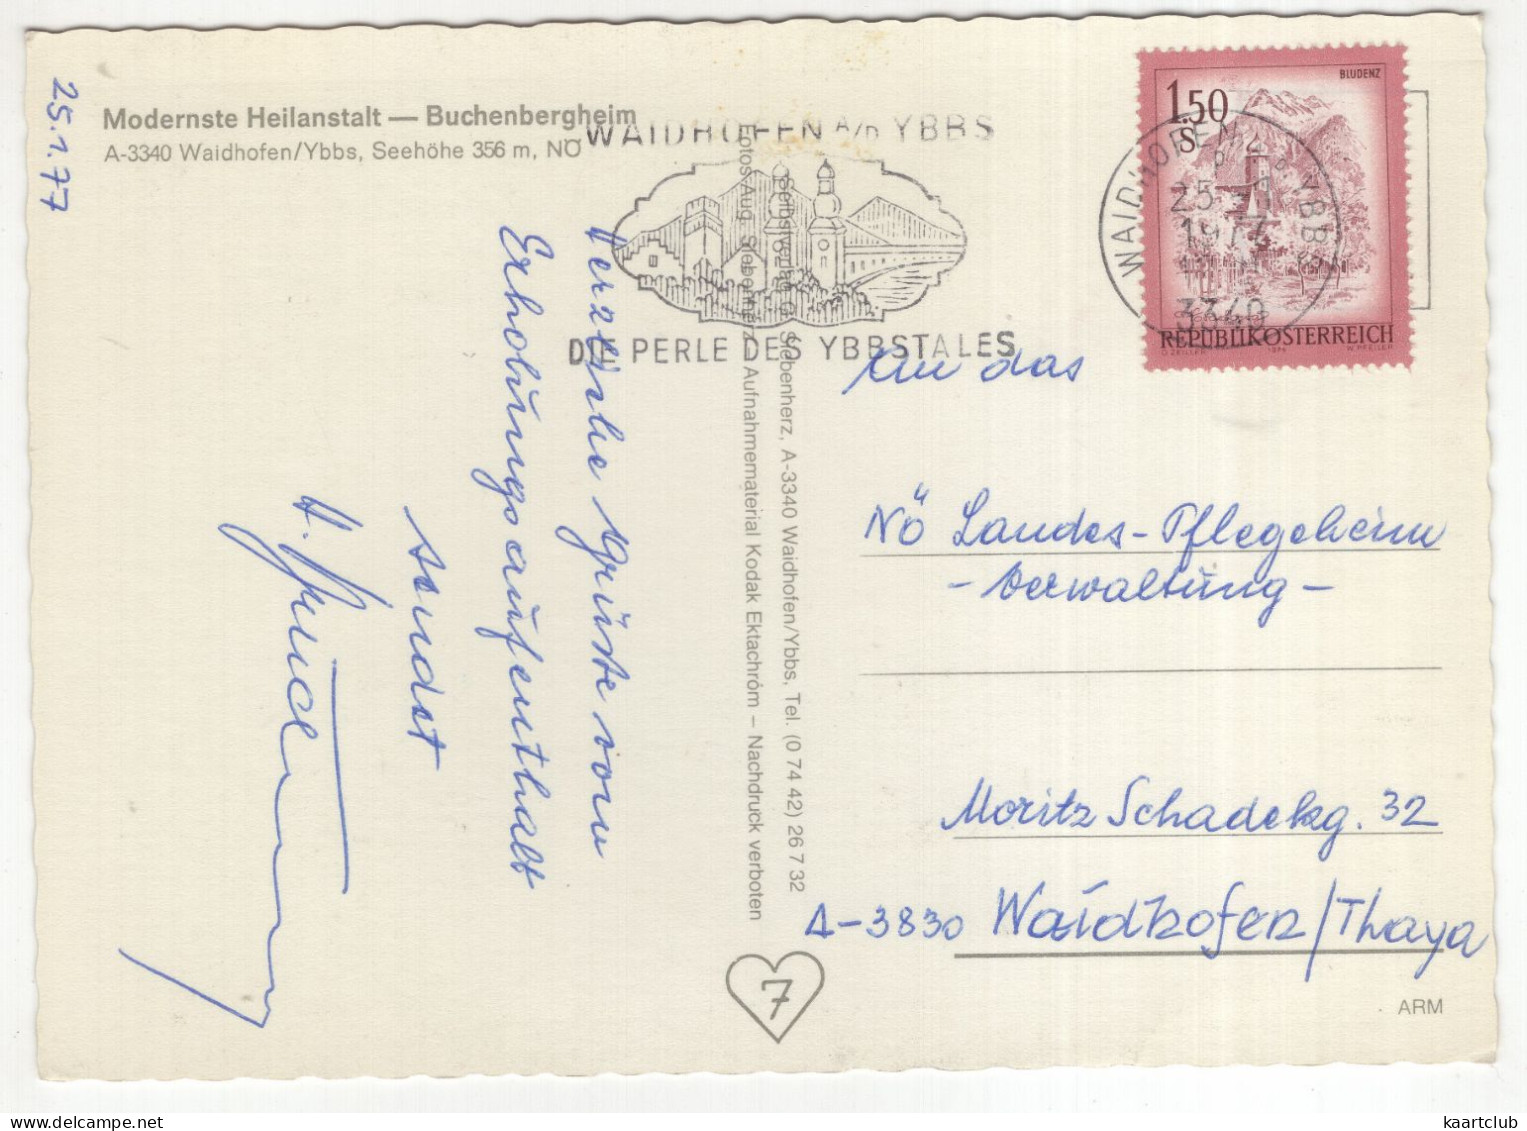 25.1.77
Modernste Heilanstalt — Buchenbergheim
A-3340 Waidhofen/Ybbs, Seehöhe 356 m, NÖ
Herzliche Grüße vom
Erholungsaufenthalt
sendet
WAIDHOFEN A/D YBBS
DIE PERLE DES YBBSTALES
Fotos Aug. Siebenherz, Aufnahmematerial Kodak Ektachróm – Nachdruck verboten
Selbstverlag G. Siebenherz, A-3340 Waidhofen/Ybbs, Tel. (0 74 42) 26 7 32
7
BLUDENZ
1.50
S
REPUBLIK ÖSTERREICH
O. ZEILLER 1974 W. PFEILER
WAIDHOFEN a. d. YBBS
25.
1977
3340
An das
NÖ Landes-Pflegeheim
- Verwaltung -
Moritz Schadekg. 32
A-3830 Waidhofen/Thaya
ARM
kaartclub